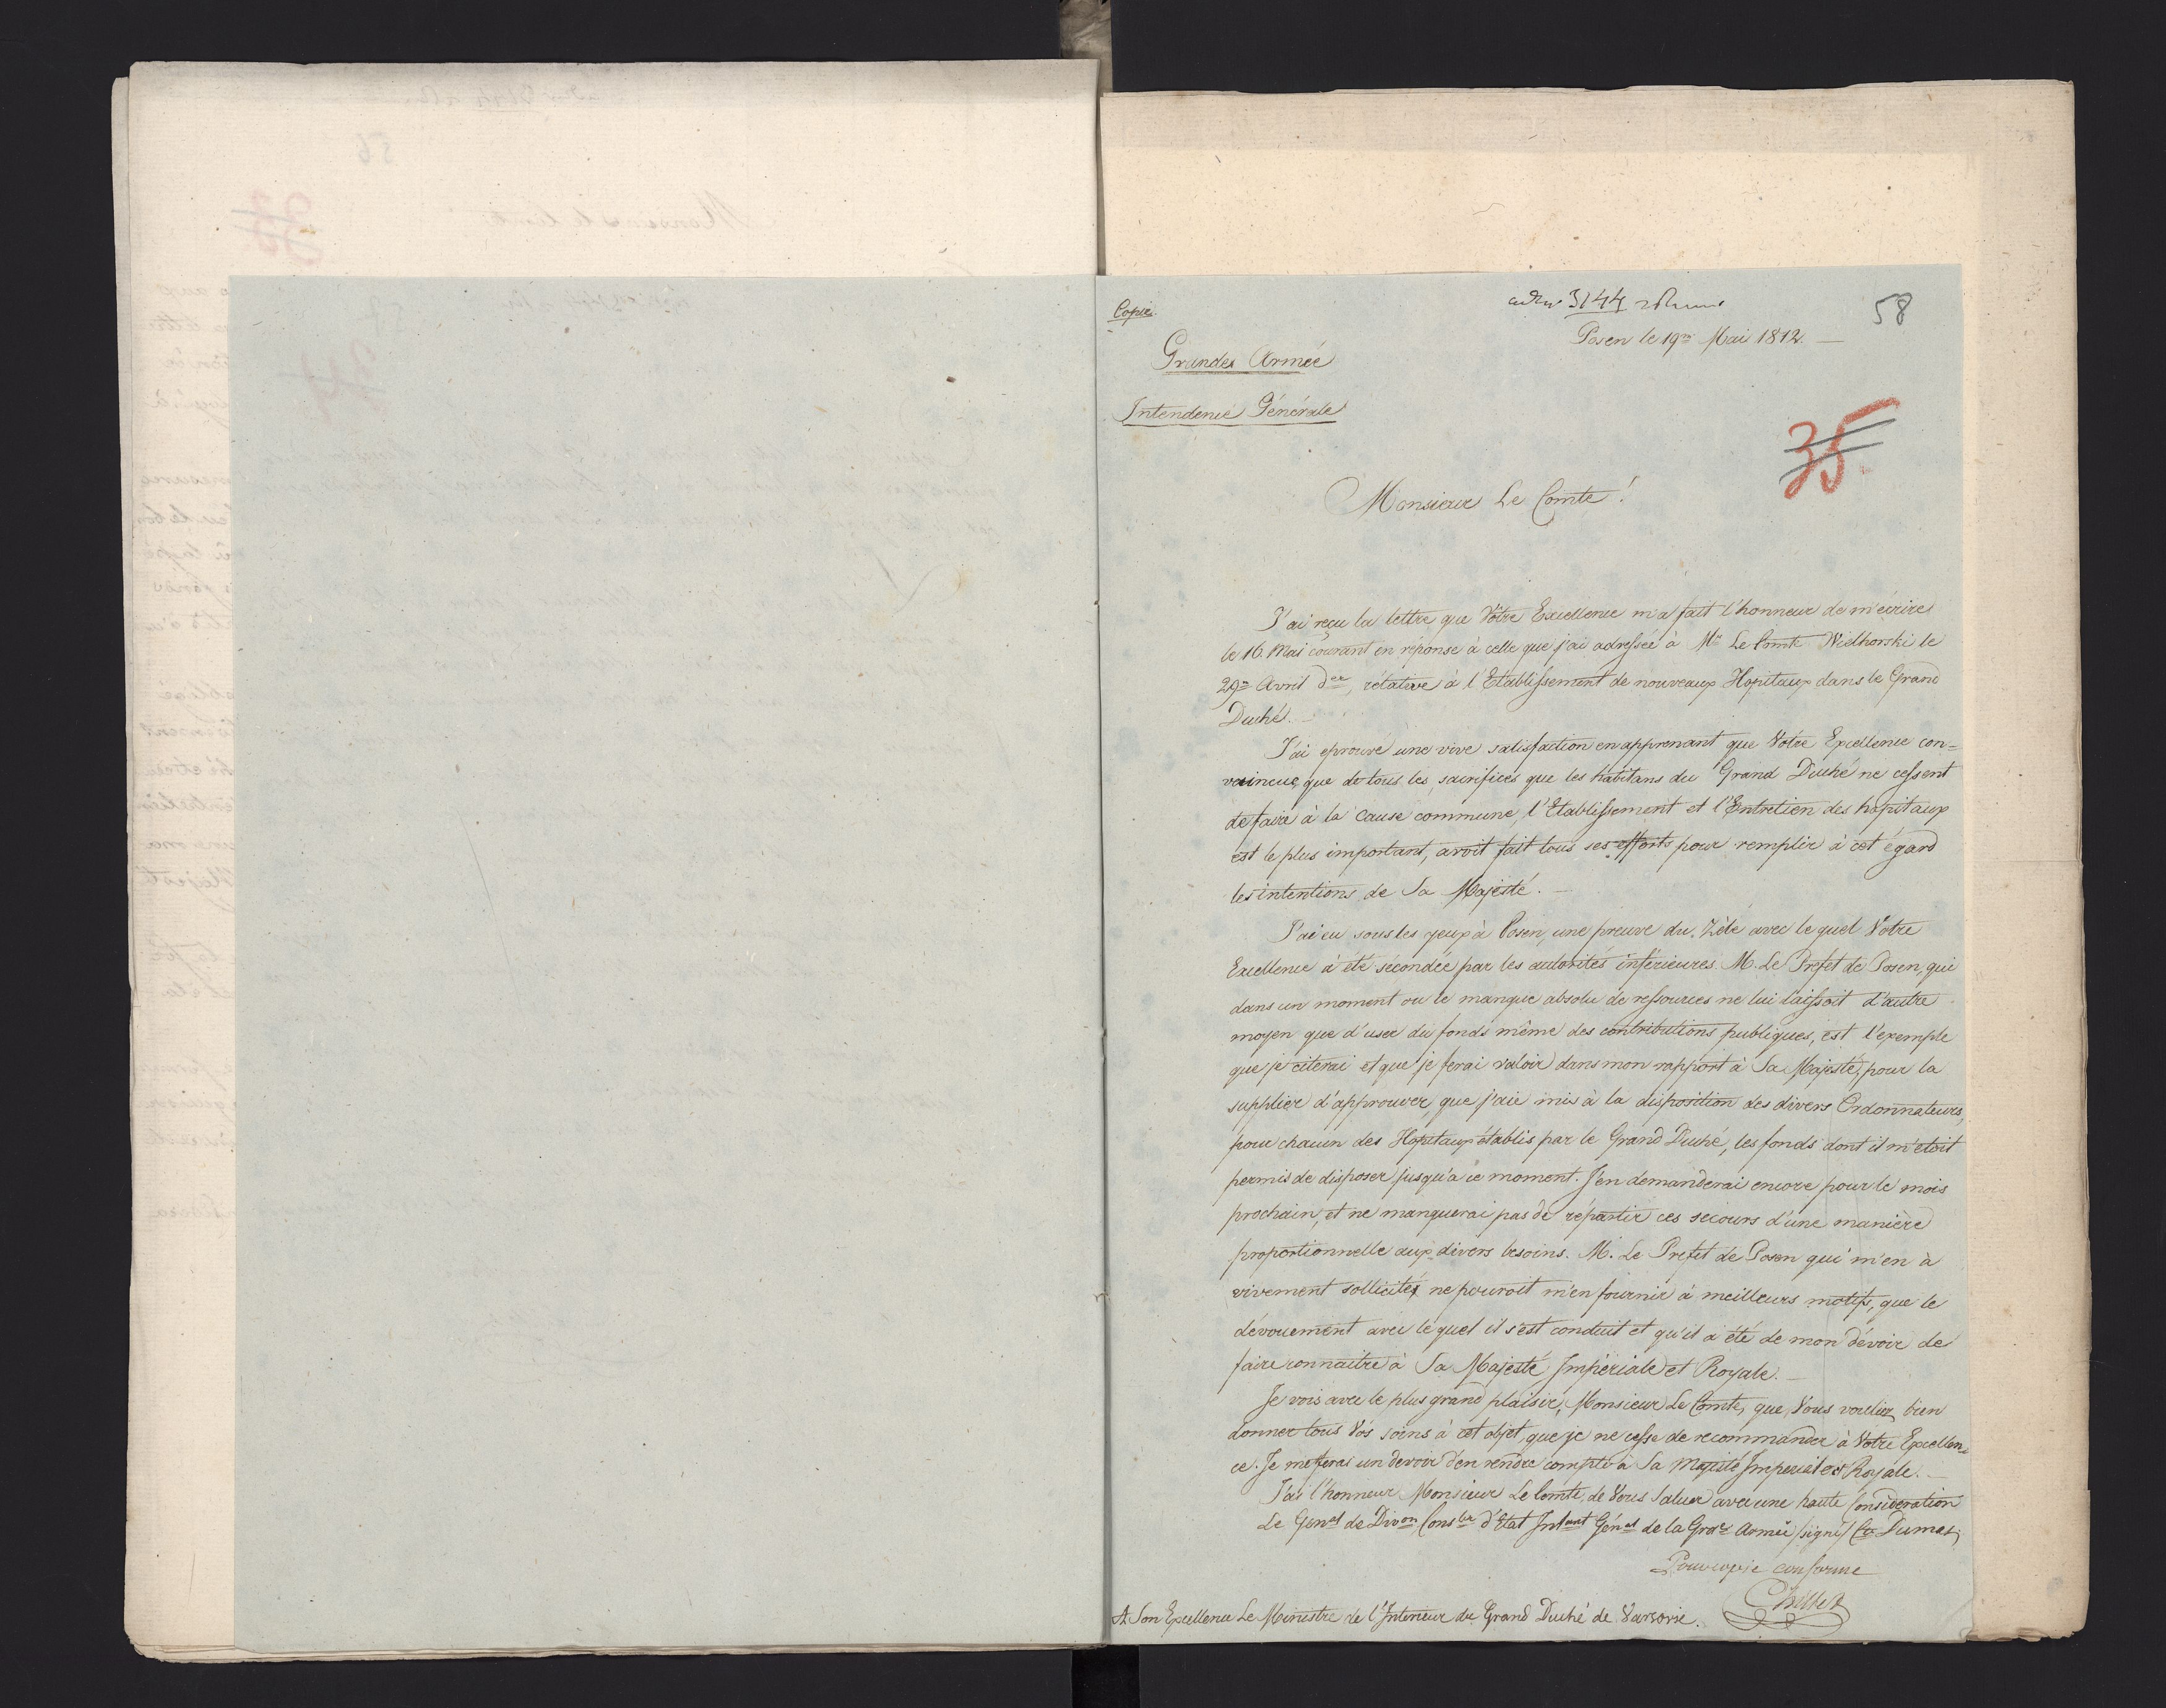 Copie.
3144
58
Posen le 19me Mai 1812. —
Grandes Armée
Intendence Générale
35
Monsieur Le Comte!
J'ai reçu la lettre que Vôtre Excellence m'a fait l'honneur de m'écrires
le 16. Mai courant en réponse à celle que j'ai adressée à Mr Le Comte Wielhorski le
29me Avril der, rélative à l'Etablissement de nouveaux Hopitaux dans le Grand
Duché. —
J'ai eprouvé une vive satisfaction en apprenant que Votre Excellence con=
vaincue, que de tous les sacrifices que les habitans du Grand Duché ne cessent
de faire à la cause commune, l'Etablissement et l'Entretien des hopitaux
est le plus important, avoit fait tous ses efforts pour remplir à cet égard
les intentions de Sa Majesté. —
J'ai eu sous les yeux à Posen, une preuve du Zèle avec le quel Votre
Excellence à été sécondée par les autorités inférieures. M. Le Prefet de Posen, qui
dans un moment ou le manque absolu de ressources ne lui laissoit d'autre
moyen que d'user du fonds même des contributions publiques, est l'exemple
que je citerai et que je ferai valoir dans mon rapport à Sa Majesté, pour la
supplier d'approuver, que j'aie mis à la disposition des divers Ordonnateurs,
pour chacun des Hopitaux établis par le Grand Duché, les fonds dont il m'etoit
permis de disposer jusqu'à ce moment. J'en demanderai encore pour le mois
prochain, et ne manquerai pas de répartir ces secours d'une manière
proportionnelle aux divers besoins. M. Le Prefet de Posen qui m'en à
vivement sollicité ne pouroit m'en fournir à meilleurs motifs, que le
dévouement avec le quel il s'est conduit et qu'il a été de mon dévoir de
faire connaître à Sa Majesté Impériale et Royale. —
Je vois avec le plus grand plaisir, Monsieur Le Comte, que Vous vouliez bien
donner tous Vos soins à cet objet, que je ne cesse de recommander à Votre Excellen=
ce. Je me ferai un devoir d'en rendre compte à Sa Majesté Imperiale et Royale. —
J'ai l'honneur Monsieur Le Comte, de Vous Saluer avec une haute Consideration
Le Génal de Divon Conser d'Etat Intant Génal de la Grde Armée /signé/ Cte Dumas,
Pour copie conforme
A Son Excellence Le Ministre de l'Interieur du Grand Duché de Varsovie.